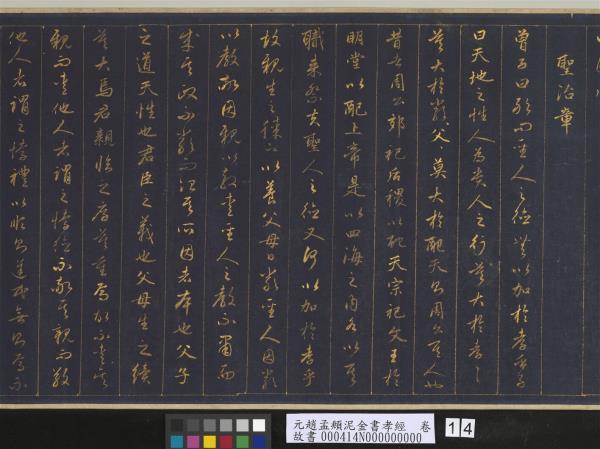 聖治章
曾子曰敢問聖人之德無以加於孝乎子
曰天地之性人為貴人之行莫大於孝〻
莫大於嚴父莫大於配天則周公其人也
昔者周公郊祀后稷以配天宗祀文王於
明堂以配上帝是以四海之內各以其
職來祭夫聖人之德又何以加於孝乎
故親生之膝下以養父母日嚴聖人因嚴
以教敬因親以教愛聖人之教不肅而
成其政不嚴而治其所因者本也父子
之道天性也君臣之義也父母生之續
莫大焉君親臨之厚莫重焉故不愛其
親而愛他人者謂之悖德不敬其親而敬
他人者謂之悖禮以順則逆民無則焉不
元趙孟頫泥金書孝經 卷
故書 000414N000000000
14